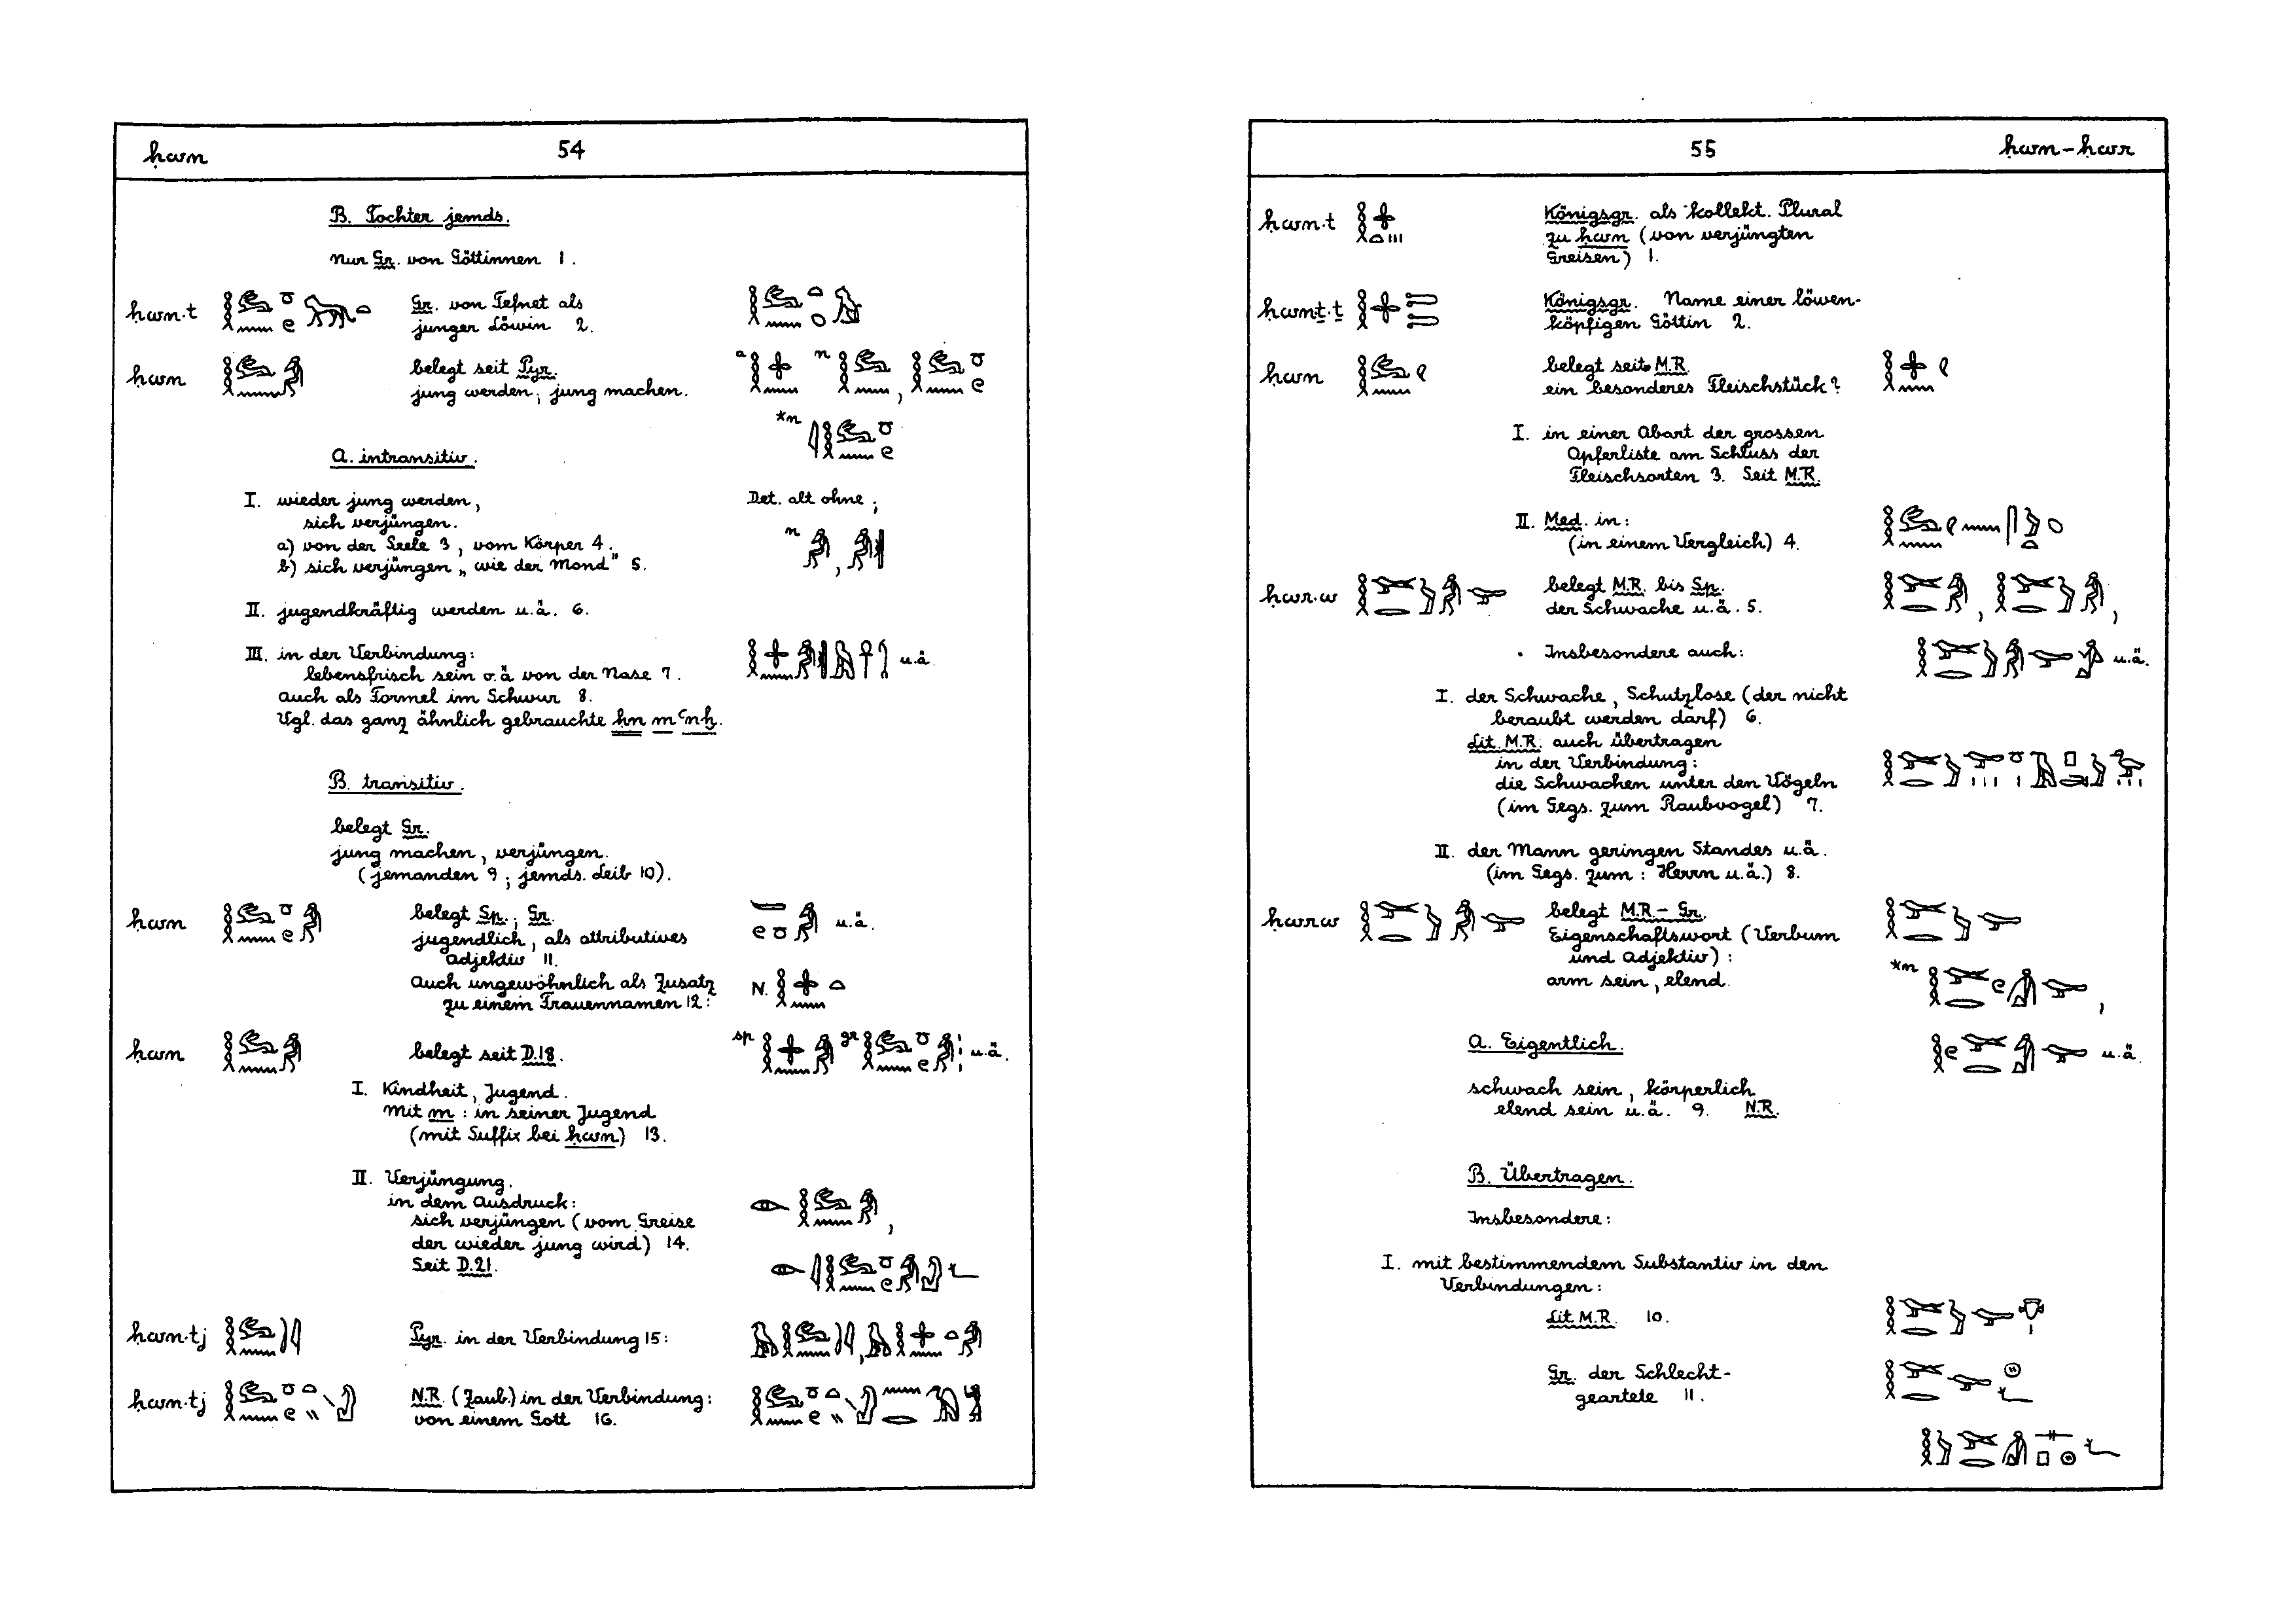 ḥwn 54
B. Tochter jemds.
nur Gr. von Göttinnen 1.
ḥwn.t Gr. von Tefnet als
junger Löwin 2.
ḥwn belegt seit Pyr.
jung werden; jung machen.
A. intransitiv.
I. wieder jung werden, Det. alt ohne;
sich verjüngen.
a) von der Seele 3, vom Körper 4.
b) sich verjüngen „wie der Mond" 5.
II. jugendkräftig werden u.ä. 6.
III. in der Verbindung: u.ä.
lebensfrisch sein o.ä von der Nase 7.
Auch als Formel im Schwur 8.
Vgl. das ganz ähnlich gebrauchte ḥn m ꜥnḫ.
B. transitiv.
belegt Gr.
jung machen, verjüngen.
(jemanden 9; jemds. Leib 10).
ḥwn belegt Sp.; Gr. u.ä.
jugendlich, als attributives
Adjektiv 11.
Auch ungewöhnlich als Zusatz
zu einem Frauennamen 12: N.
ḥwn belegt seit D.18. sp gr u.ä.
I. Kindheit, Jugend.
mit m : in seiner Jugend
(mit Suffix bei ḥwn) 13.
II. Verjüngung.
in dem Ausdruck:
sich verjüngen (vom Greise
der wieder jung wird) 14.
Seit D.21.
ḥwn.tj Pyr. in der Verbindung 15:
ḥwn.tj N.R. (Zaub.) in der Verbindung:
von einem Gott 16.
55 ḥwn–ḥwr
ḥwn.t Königsgr. als kollekt. Plural
zu ḥwn (von verjüngten
Greisen) 1.
ḥwnṯ.ṯ Königsgr. Name einer löwen-
köpfigen Göttin 2.
ḥwn belegt seit M.R.
ein besonderes Fleischstück?
I. in einer Abart der grossen
Opferliste am Schluss der
Fleischsorten 3. Seit M.R.
II. Med. in:
(in einem Vergleich) 4.
ḥwr.w belegt M.R. bis Sp.
der Schwache u.ä. 5.
Insbesondere auch: u.ä.
I. der Schwache, Schutzlose (der nicht
beraubt werden darf) 6.
Lit. M.R. auch übertragen
in der Verbindung:
die Schwachen unter den Vögeln
(im Gegs. zum Raubvogel) 7.
II. der Mann geringen Standes u.ä.
(im Gegs. zum: Herrn u.ä.) 8.
ḥwrw belegt M.R – Gr.
Eigenschaftswort (Verbum
und Adjektiv):
arm sein, elend.
A. Eigentlich. u.ä.
schwach sein, körperlich
elend sein u.ä. 9. N.R.
B. Übertragen.
Insbesondere:
I. mit bestimmendem Substantiv in den
Verbindungen:
Lit M.R. 10.
Gr. der Schlecht-
geartete 11.